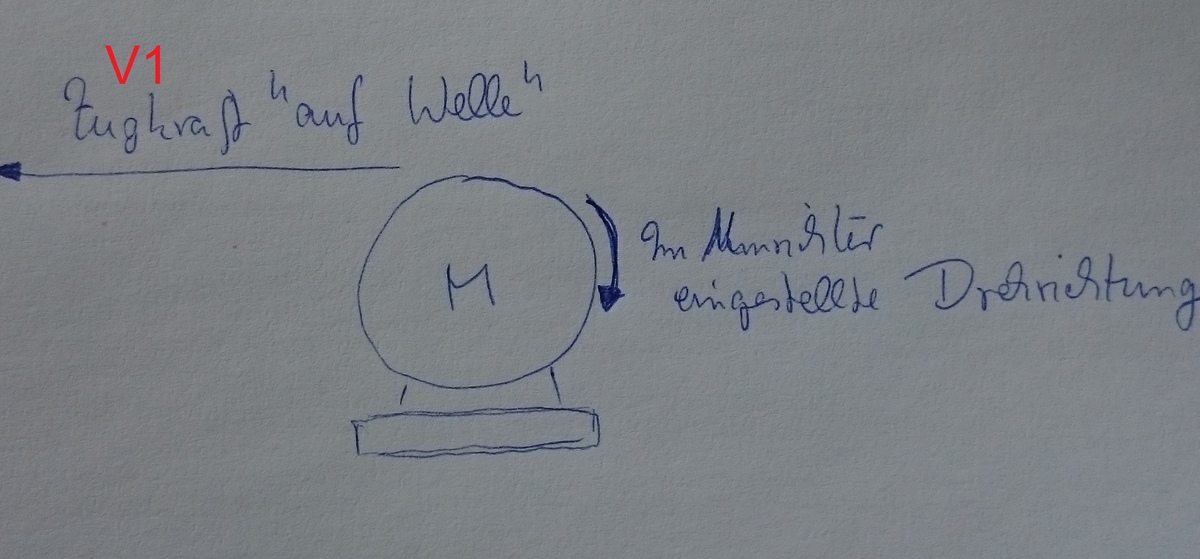 V1
Zugkraft "auf Welle"
M
Im Umrichter
eingestellte Drehrichtung